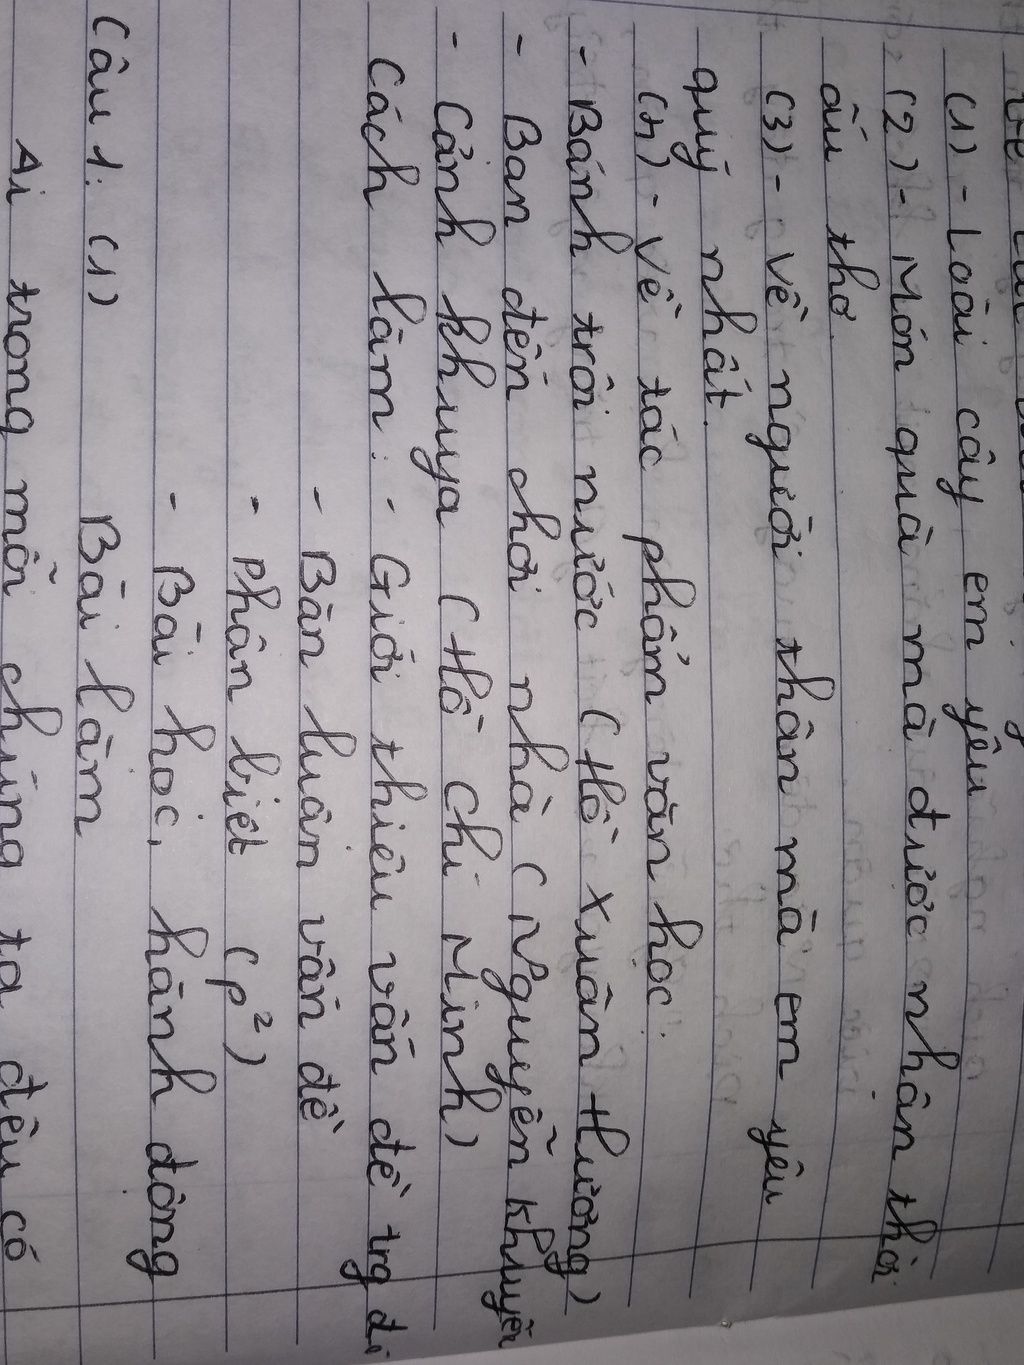 (1) - Loài cây em yêu
(2) - Món quà mà được nhận thời
ấu thơ
(3) - Về người thân mà em yêu
quý nhất.
(4) - Về tác phẩm văn học
- Bánh trôi nước (Hồ Xuân Hương)
- Bạn đến chơi nhà (Nguyễn Khuyến
- Cảnh khuya (Hồ Chí Minh)
Cách làm: - Giới thiệu vấn đề trg đ
- Bàn luận vấn đề
- Phân biệt (p²)
- Bài học, hành động
Câu 1: (1) Bài làm
Ai trong mỗi chúng ta đều có